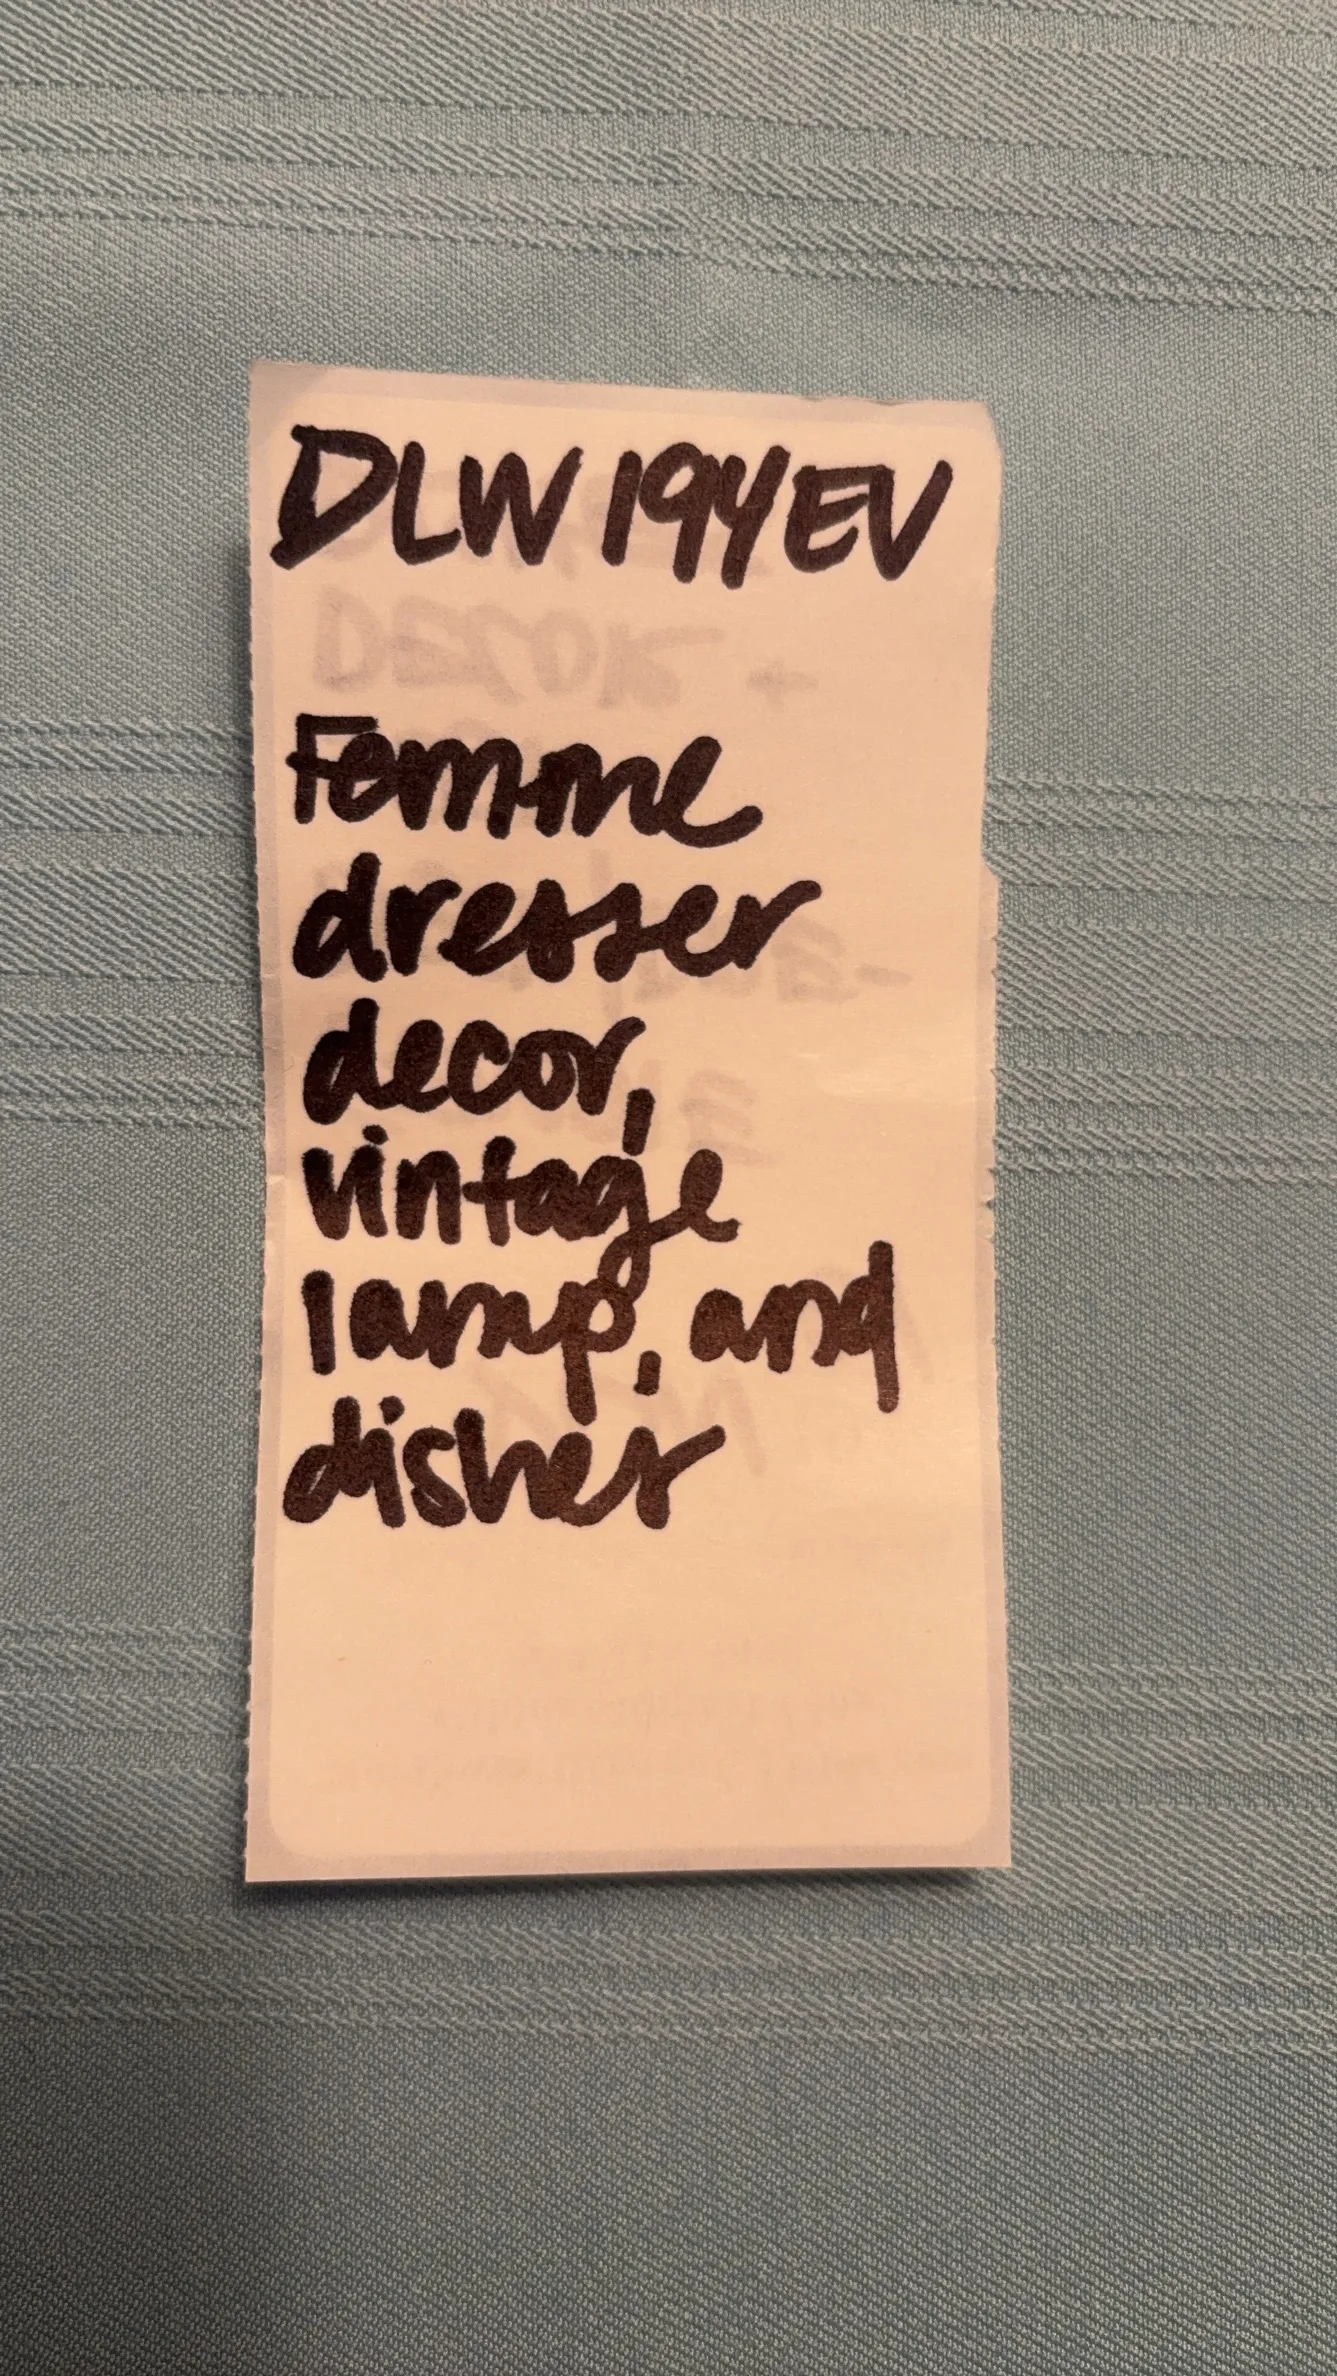 DLW 194EV
Femme
dresser
decor,
vintage
lamp, and
dishes
DECOR +